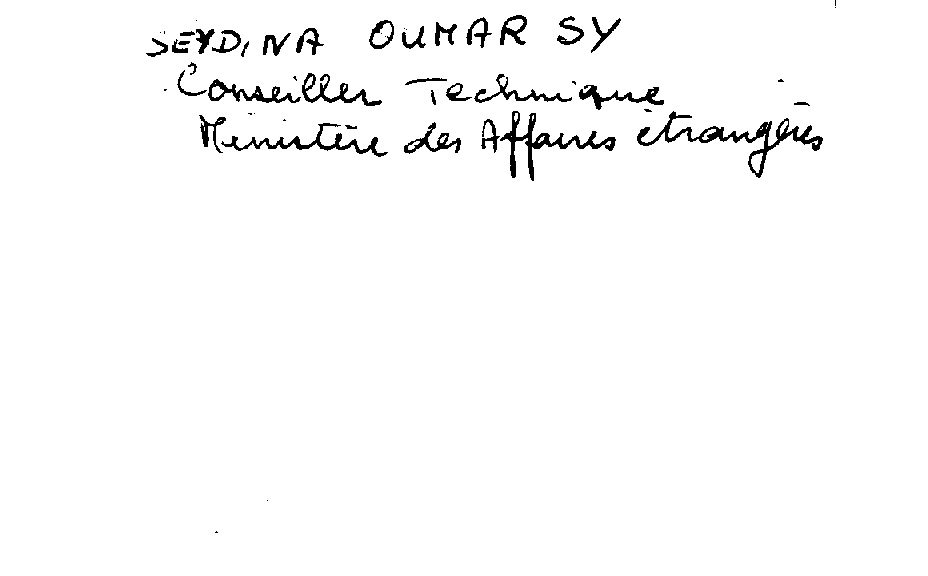 SEYDINA OUMAR SY
Conseiller Technique
Ministère des Affaires étrangères